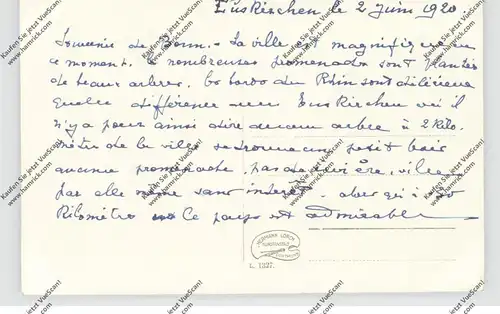 Euskirchen le 2 Juin 1920.
Souvenir de Bonn. - La ville est magnifique en
ce moment. de nombreuses promenades sont plantées
de beaux arbres. les bords du Rhin sont délicieux
quelle différence avec Euskirchen où il
n'y a pour ainsi dire aucun arbre à 2 Kilo.
mètres de la ville se trouve un petit bois
aucune promenade, pas de rivière, ville
par elle même sans intérêt.
Kilomètres le pays est admirable
HERMANN LORCH
KUNSTVERLAG
DORTMUND
L. 1327.
Kaufen Sie jetzt VueScan!
www.hamrick.com